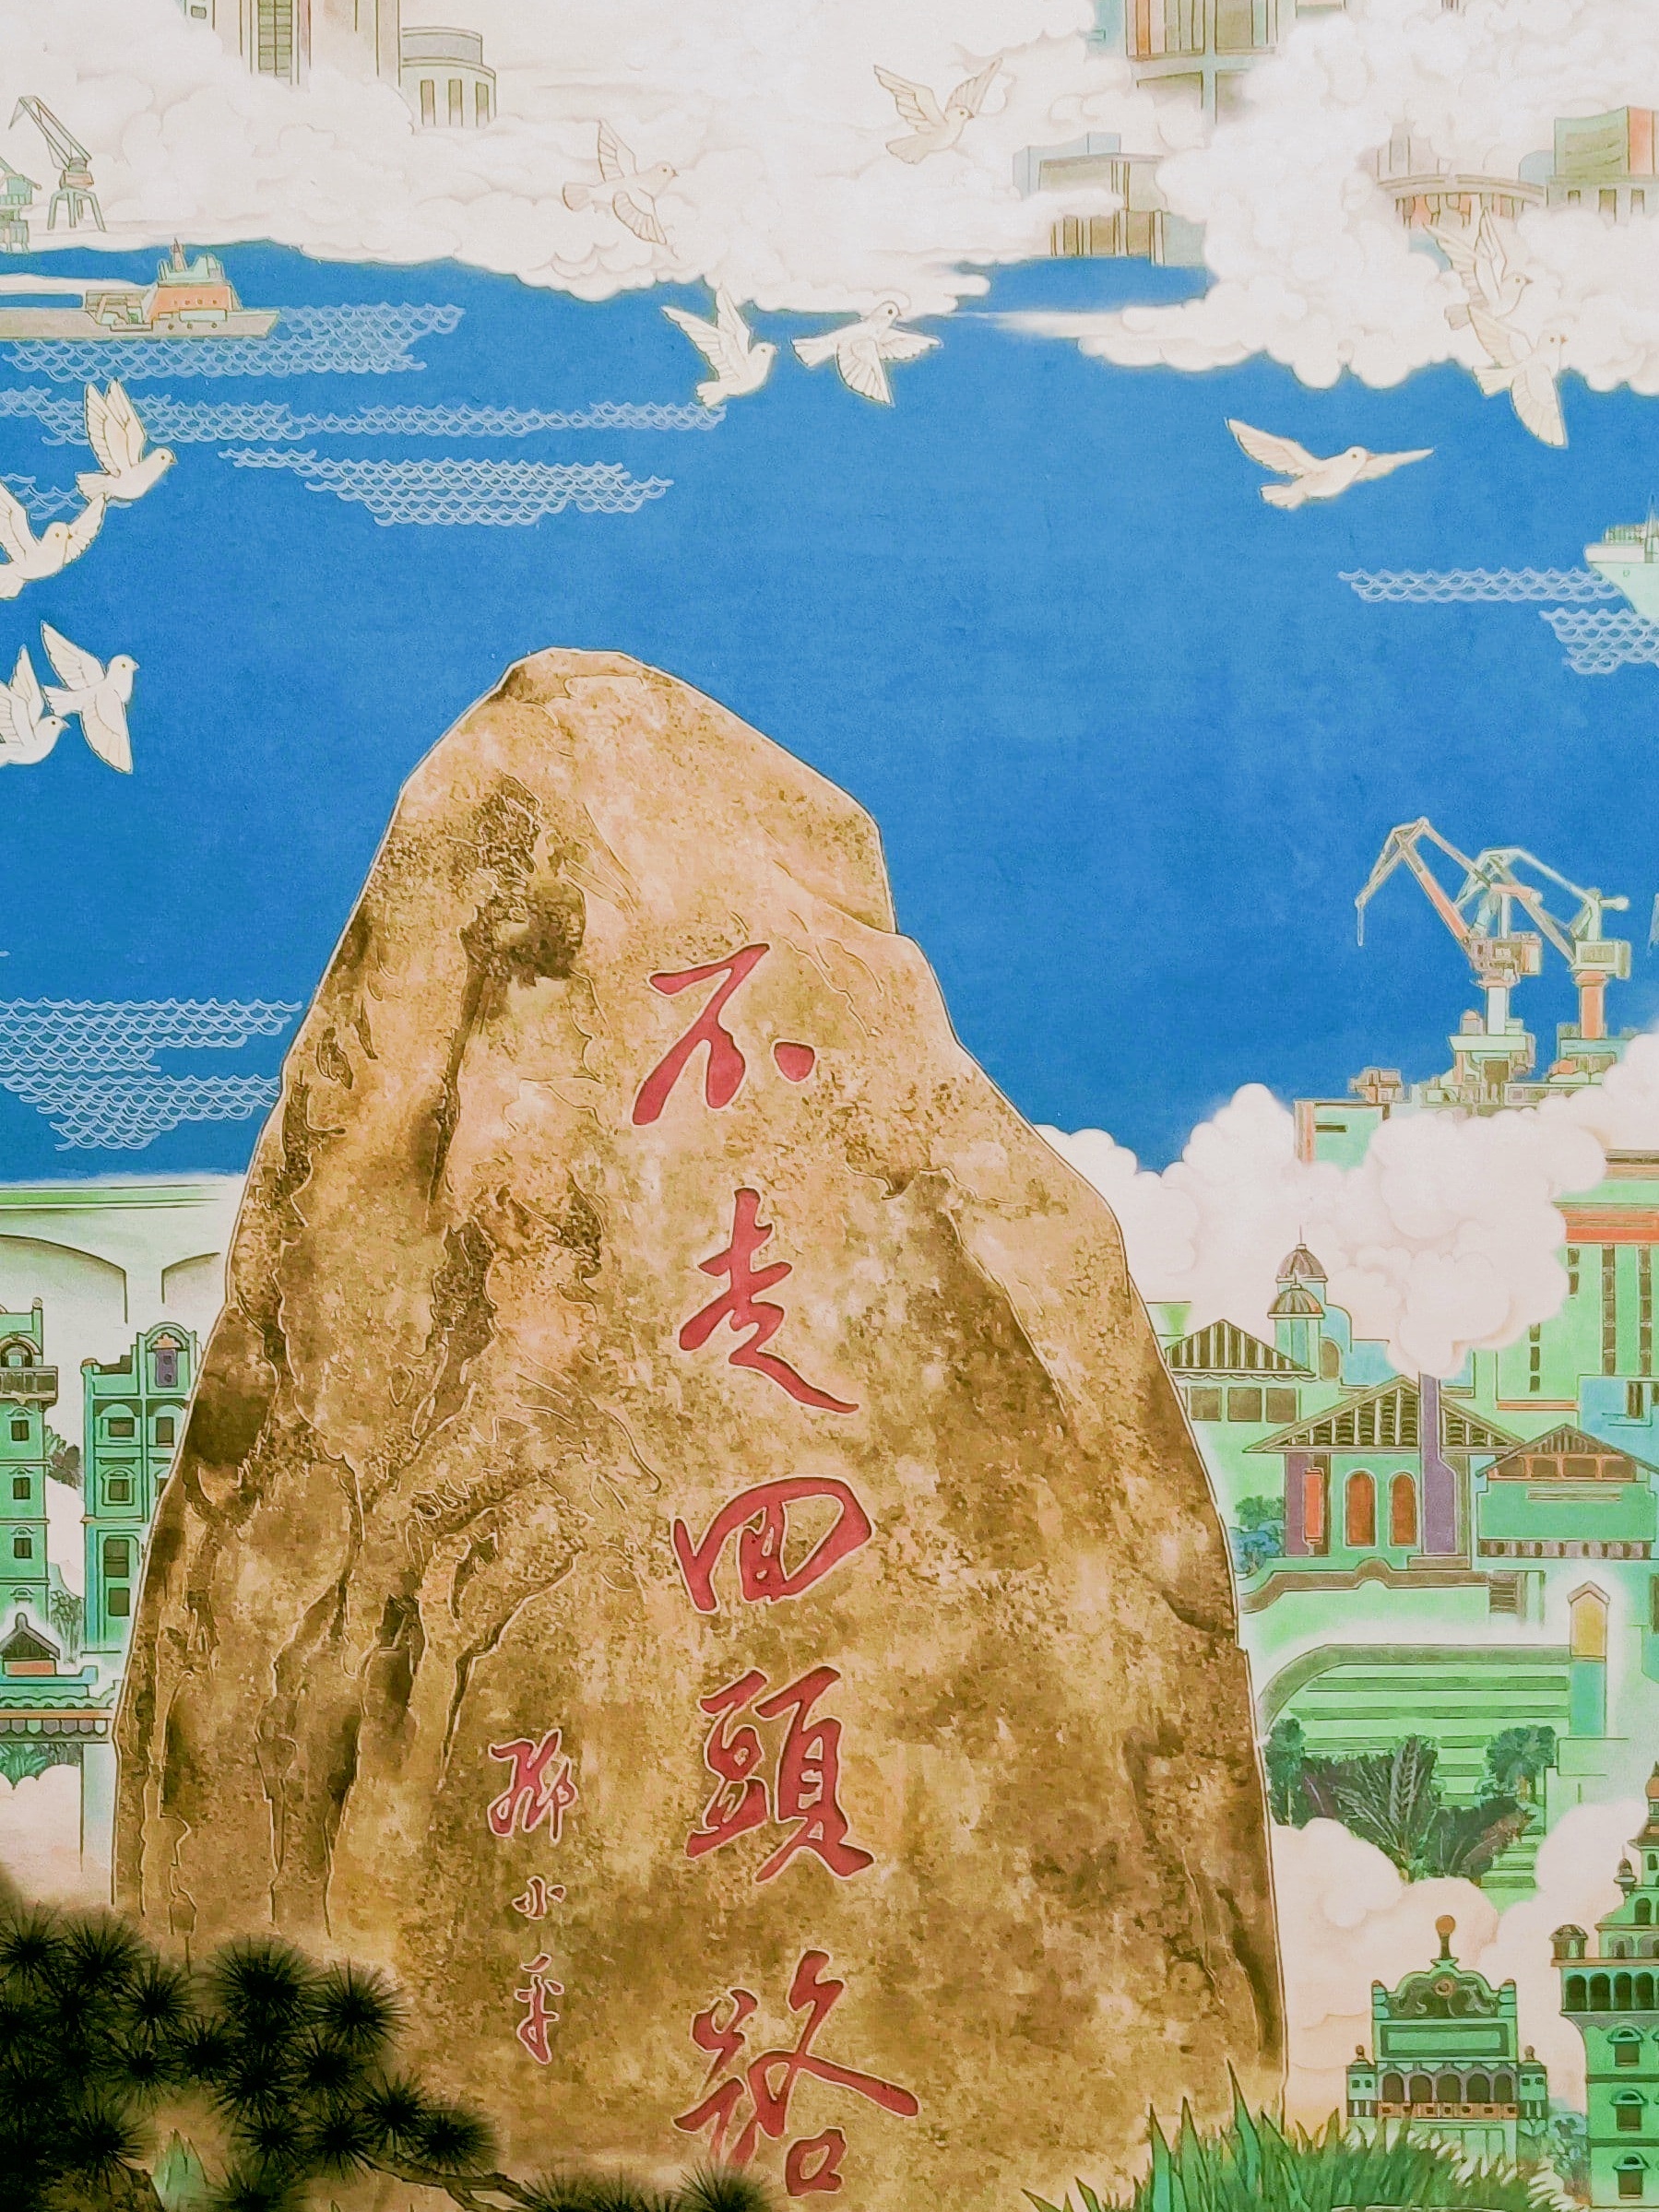 不走回頭路
鄧小平